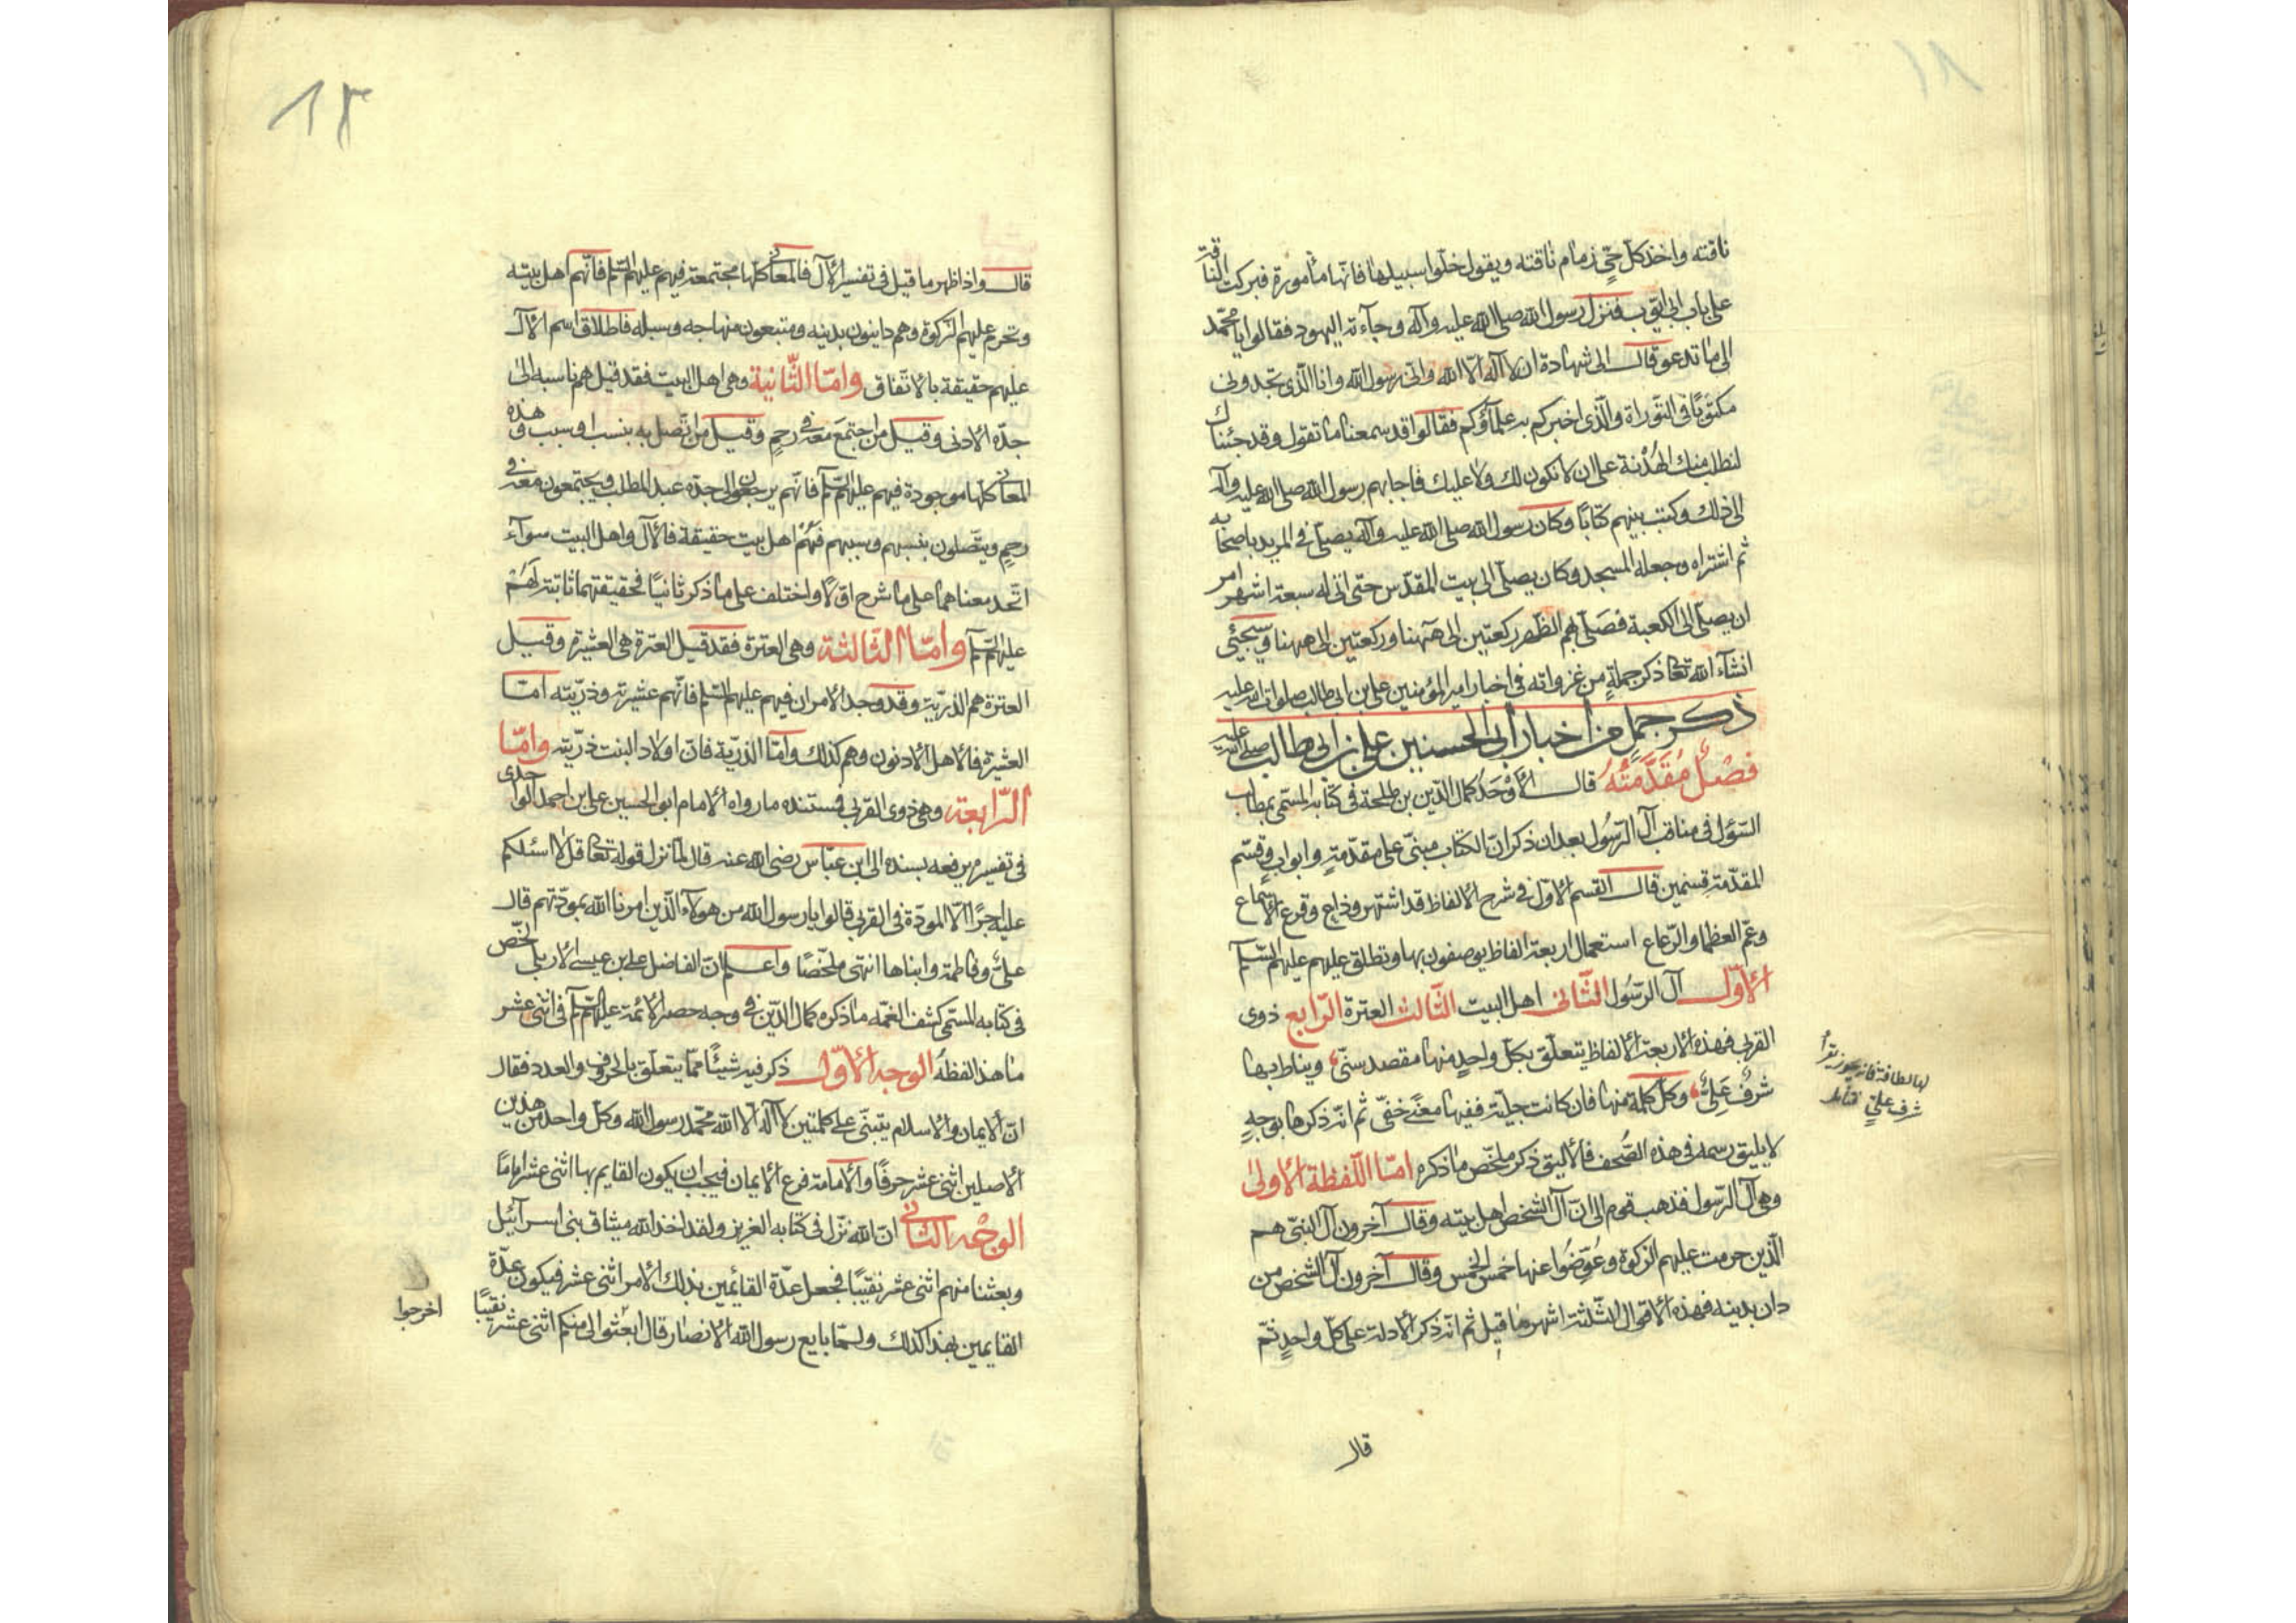 ١١
ناقته واخذ كلّ حيّ زمام ناقته ويقول خلّوا سبيلها فانّها مأمورة فبركت الناقة
على باب ابي ايّوب فنزل رسول الله صلى الله عليه وآله وجآءته اليهود فقالوا يا محمّد
الى ما تدعو قال الى شهادة ان لا آله الّا الله وانّى رسول الله وانا الّذى تجدونى
مكتوبًا فى التّوراة والّذى اخبركم به علمآؤكم فقالوا قد سمعنا ما تقول وقد جئناك
لنطلب منك الهُدْنة على ان لا نكون لك ولا عليك فاجابهم رسول الله صلى الله عليه وآله
الى ذلك وكتب بينهم كتابًا وكان رسول الله صلى الله عليه وآله يصلّى فى المربد باصحابه
ثم اشتراه وجعله المسجد وكان يصلّى الى بيت المقدّس حتى اتى له سبعة اشهر امر
ان يصلّى الى الكعبة فصَلّى بهم الظّهر ركعتين الى هٓهنا وركعتين الى ههنا وسيجئ
انشآء الله تعالى ذكر جملةٍ من غزواته فى اخبار امير المؤمنين على بن ابى طالب صلوات الله عليه
ذكر جملٍ من اخبار ابى الحسنين على بن ابى طالب صلى الله عليه
فصْلٌ مُقَدَّمَتُهُ قال الأوْحَدُ كمال الدّين بن طلحة فى كتابه المسمّى بمطالب
السّؤل فى مناقب آل الرّسُول بعد ان ذكر انّ الكتاب مبنّى على مقدّمةٍ وابوابٍ وقسّم
المقدّمة قسمين قال القسم الاوّل فى شرح الالفاظ قد اشتهر وذاع وقرع الأسماع
وعمّ العظما والرّعاع استعمال اربعة الفاظ يوصفون بها وتطلق عليهم عليهم السّلم
الأوّل آل الرّسُول الثّانى اهل البيت الثّالث العترة الرّابع ذوى
القربى فهذه الاربعة الالفاظ يتعلّق بكلّ واحدٍ منها مقصد سنّى ويناط بها
شرفٌ علىٌّ وكلّ كلمة منها فان كانت جليّة ففيها معنًى خفّى ثم انّه ذكرها بوجهٍ
لا يليق رسمه فى هذه الصّحف فالأليق ذكر ملخّص ما ذكره امّا اللّفظة الأولىٰ
وهى آل الرّسول فذهب قوم الى انّ آل الشخص اهل بيته وقال آخرون آل النبّى هم
الّذين حرمت عليهم الزكوة وعُوّضُوا عنها خمس الخمس وقال آخرون آل الشخص من
دان بدينه فهذه الاقوال الثّلثة اشهر ما قيل ثم انّه ذكر الأدلة على كلّ واحدٍ ثمّ
قال
شرف علىّ فتأمل
١٢
قال واذا ظهر ما قيل فى تفسير الآل فالمعانى كلّها مجتمعة فيهم عليهم السّلم فانّهم اهل بيته
وتحرم عليهم الزكوة وهم داينون بدينه ومتبعون منهاجه وسبله فاطلاق اسم الآل
عليهم حقيقة بالاتّفاق وامّا الثّانية وهى اهل البيت فقد قيل هم ناسبه الىٰ
جدّه الأدنى وقيل من اجتمَعَ معه فى رحمٍ وقيل من اتّصل به بنسب او سبب وهذه
المعانى كلها موجودة فيهم عليهم السّلم فانّهم يرجعون الى جدّه عبد المطلب ويجتمعون معه فى
رحمٍ ويتّصلون بنسبهم وسببهم فَهُمْ اهل بيت حقيقة فالآل واهل البيت سوآء
اتّحد معناهما على ما شرح اوّلاً او اختلف على ما ذكر ثانيًا فحقيقتهما ثابتة لَهُمْ
عليهم السّلم وامّا الثّالثة وهى العترة فقد قيل العترة هى العشيرة وقيل
العترة هم الذريّة وقد وجد الامران فيهم عليهم السّلم فانّهم عشيرته وذرّيته امّا
العشيرة فالأهل الأدنون وهم كذلك وامّا الذريّة فانّ اولاد البنت ذرّيته وامّا
الرّابعة وهى ذوى القربى فمستنده ما رواه الامام ابو الحسين على بن احمد الواحدى
فى تفسيره يرفعه بسنده الى ابن عبّاس رضى الله عنه قال لمّا نزل قوله تعالى قل لا اسئلكم
عليه اجرًا الّا المودّة فى القربى قالوا يا رسول الله من هولآء الّذين امرنا الله بمودّتهم قال
علىّ وفاطمة وابناها انتهى ملخّصًا واعلم انّ الفاضل على بن عيسى الاربلى لخّص
فى كتابه المسمّى كشف الغمّه ما ذكره كمال الدّين فى وجه حصر الأئمة عليهم السّلم فى اثنى عشر
ما هذا لفظهُ الوجه الأوّل ذكر فيه شيئًا ممّا يتعلّق بالحروف والعدد فقال
انّ الايمان والاسلام يتبنّى على كلمتين لا آله الّا الله محمّد رسول الله وكلّ واحد من هذين
الأصلين اثنى عشر حرفًا والأمامة فرع الأيمان فيجب ان يكون القايم بها اثنى عشر امامًا
الوجْه الثّانى انّ الله نزّل فى كتابه العزيز ولقد اخذ الله ميثاق بنى اسرآئيل
وبعثنا منهم اثنى عشر نقيبًا فجعل عدّة القائمين بذلك الأمر اثنى عشر فيكون عدّة
القايمين بهذا كذلك ولمّا بايع رسول الله الانصار قال ابعثوا الى منكم اثنى عشر نقيبًا
اخرجوا